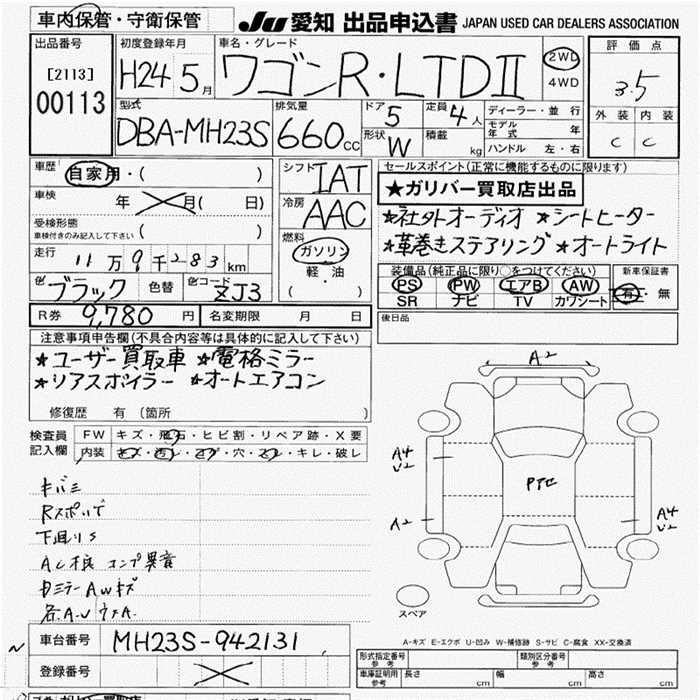 車内保管・守衛保管
JU 愛知 出品申込書 JAPAN USED CAR DEALERS ASSOCIATION
出品番号
[2113]
00113
初度登録年月
H24 5月
車名・グレード
ワゴンR・LTDⅡ
2WD
4WD
評価点
3.5
外装 内装
C C
型式
DBA-MH23S
排気量
660cc
ドア 5
形状 W
定員 4人
積載 kg
ディーラー・並行
モデル年式 年
ハンドル 左・右
車歴 自家用・( )
車検 年 月( 日)
受検形態
車検付きのみ記入して下さい ( )
走行 11万9千283km
色 ブラック 色替 色コード ZJ3
シフト IAT
冷房 AAC
燃料
ガソリン
軽・油
( )
セールスポイント(正常に機能するものに限ります)
★ガリバー買取店出品
★社外オーディオ ★シートヒーター
★革巻きステアリング ★オートライト
装備品(純正品に限り○をつけてください)
PS PW エアB AW
SR ナビ TV カワシート
新車保証書
有・無
R券 9,780円 名変期限 月 日
後日品
注意事項申告欄(不具合内容等は具体的に記入して下さい)
★ユーザー買取車 ★電格ミラー
★リアスポイラー ★オートエアコン
修復歴 有 (箇所 )
検査員記入欄
FW キズ・飛石・ヒビ割・リペア跡・X要
内装 キズ・汚レ・コゲ・穴・スレ・キレ・破レ
キバミ
下回りS
A2
A4
U2
A2
A4
U2
スペア
A-キズ E-エクボ U-凹み W-補修跡 S-サビ C-腐食 XX-交換済
車台番号 MH23S-942131
登録番号
形式指定番号 参考 類別区分番号 参考
車庫証明用 参考 長さ cm 幅 cm 高さ cm